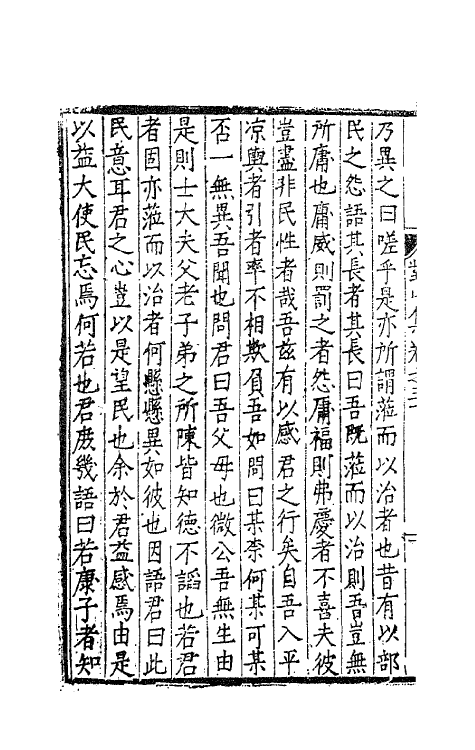 乃異之曰嗟乎是亦所謂蒞而以治者也昔有以部
民之怨語其長者其長曰吾既蒞而以治則吾豈無
所庸也庸威則罰之者怨庸福則弗慶者不喜夫彼
豈盡非民性者哉吾茲有以感君之行矣自吾入平
凉輿者引者率不相欺負吾如問曰某奈何某可某
否一無異吾聞也問君曰吾父母也微公吾無生由
是則士大夫父老子弟之所陳皆知德不謟也若君
者固亦蒞而以治者何懸懸異如彼也因語君曰此
民意耳君之心豈以是望民也余於君益感焉由是
以益大使民忘焉何若也君庻幾語曰若康子者知